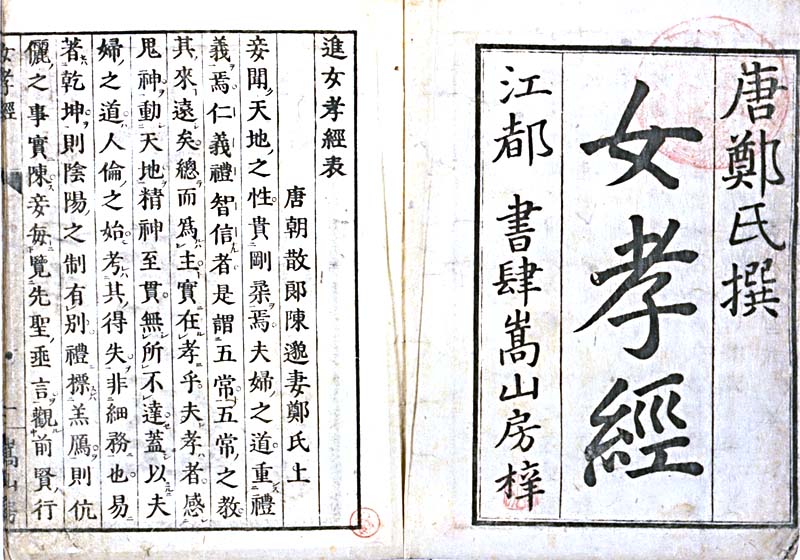 唐鄭氏撰
女孝經
江都 書肆嵩山房梓
進女孝經表
唐朝散郎陳邈妻鄭氏上
妾聞天地之性貴剛柔焉夫婦之道重禮
義焉仁義禮智信者是謂五常五常之教
其來遠矣總而爲主實在孝乎夫孝者感
鬼神動天地精神至貫無所不達蓋以夫
婦之道人倫之始考其得失非細務也易
著乾坤則陰陽之制有別禮摽羔鴈則伉
儷之事實陳妾每覽先聖垂言觀前賢行
女孝經
一
嵩山房